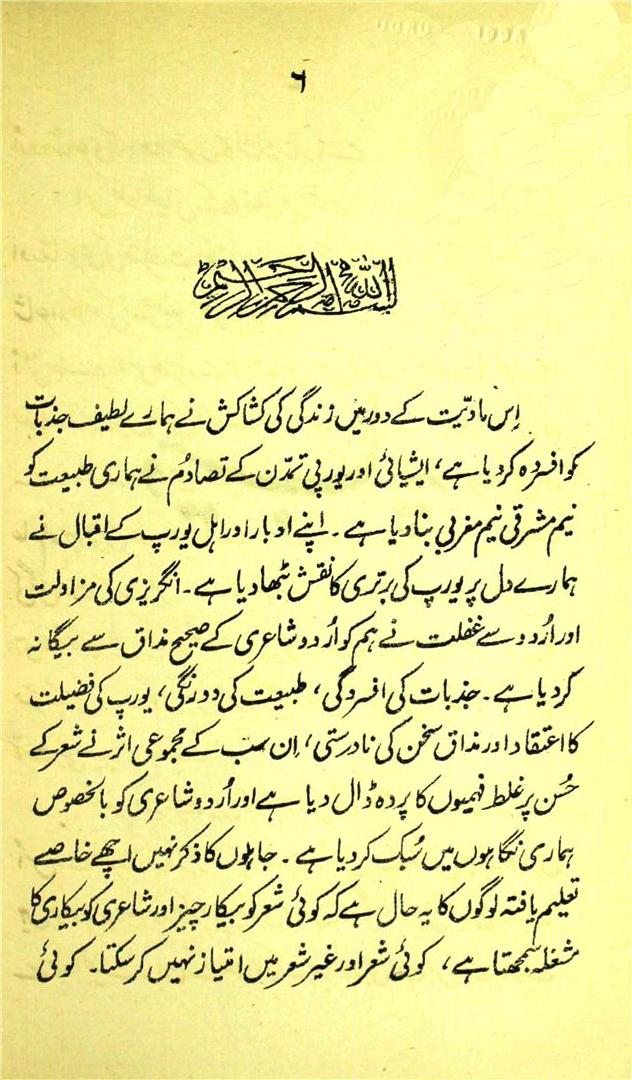 ۶
بسم اللہ الرحمن الرحیم
اِس مادیّت کے دور میں زندگی کی کشاکش نے ہمارے لطیف جذبات
کو افسردہ کر دیا ہے، ایشیائی اور یورپی تمدّن کے تصادُم نے ہماری طبیعت کو
نیم مشرقی نیم مغربی بنا دیا ہے۔ اپنے ادبار اور اہلِ یورپ کے اقبال نے
ہمارے دل پر یورپ کی برتری کا نقش بٹھا دیا ہے۔ انگریزی کی مزاولت
اور اُردو سے غفلت نے ہم کو اُردو شاعری کے صحیح مذاق سے بیگانہ
کر دیا ہے۔ جذبات کی افسردگی، طبیعت کی دورنگی، یورپ کی فضیلت
کا اعتقاد اور مذاق سخن کی نادرستی، اِن سب کے مجموعی اثر نے شعر کے
حُسن پر غلط فہمیوں کا پردہ ڈال دیا ہے اور اُردو شاعری کو بالخصوص
ہماری نگاہوں میں سُبک کر دیا ہے۔ جاہلوں کا ذکر نہیں اچھے خاصے
تعلیم یافتہ لوگوں کا یہ حال ہے کہ کوئی شعر کو بیکار چیز اور شاعری کو بیکاری کا
مشغلہ سمجھتا ہے، کوئی شعر اور غیر شعر میں امتیاز نہیں کر سکتا۔ کوئی